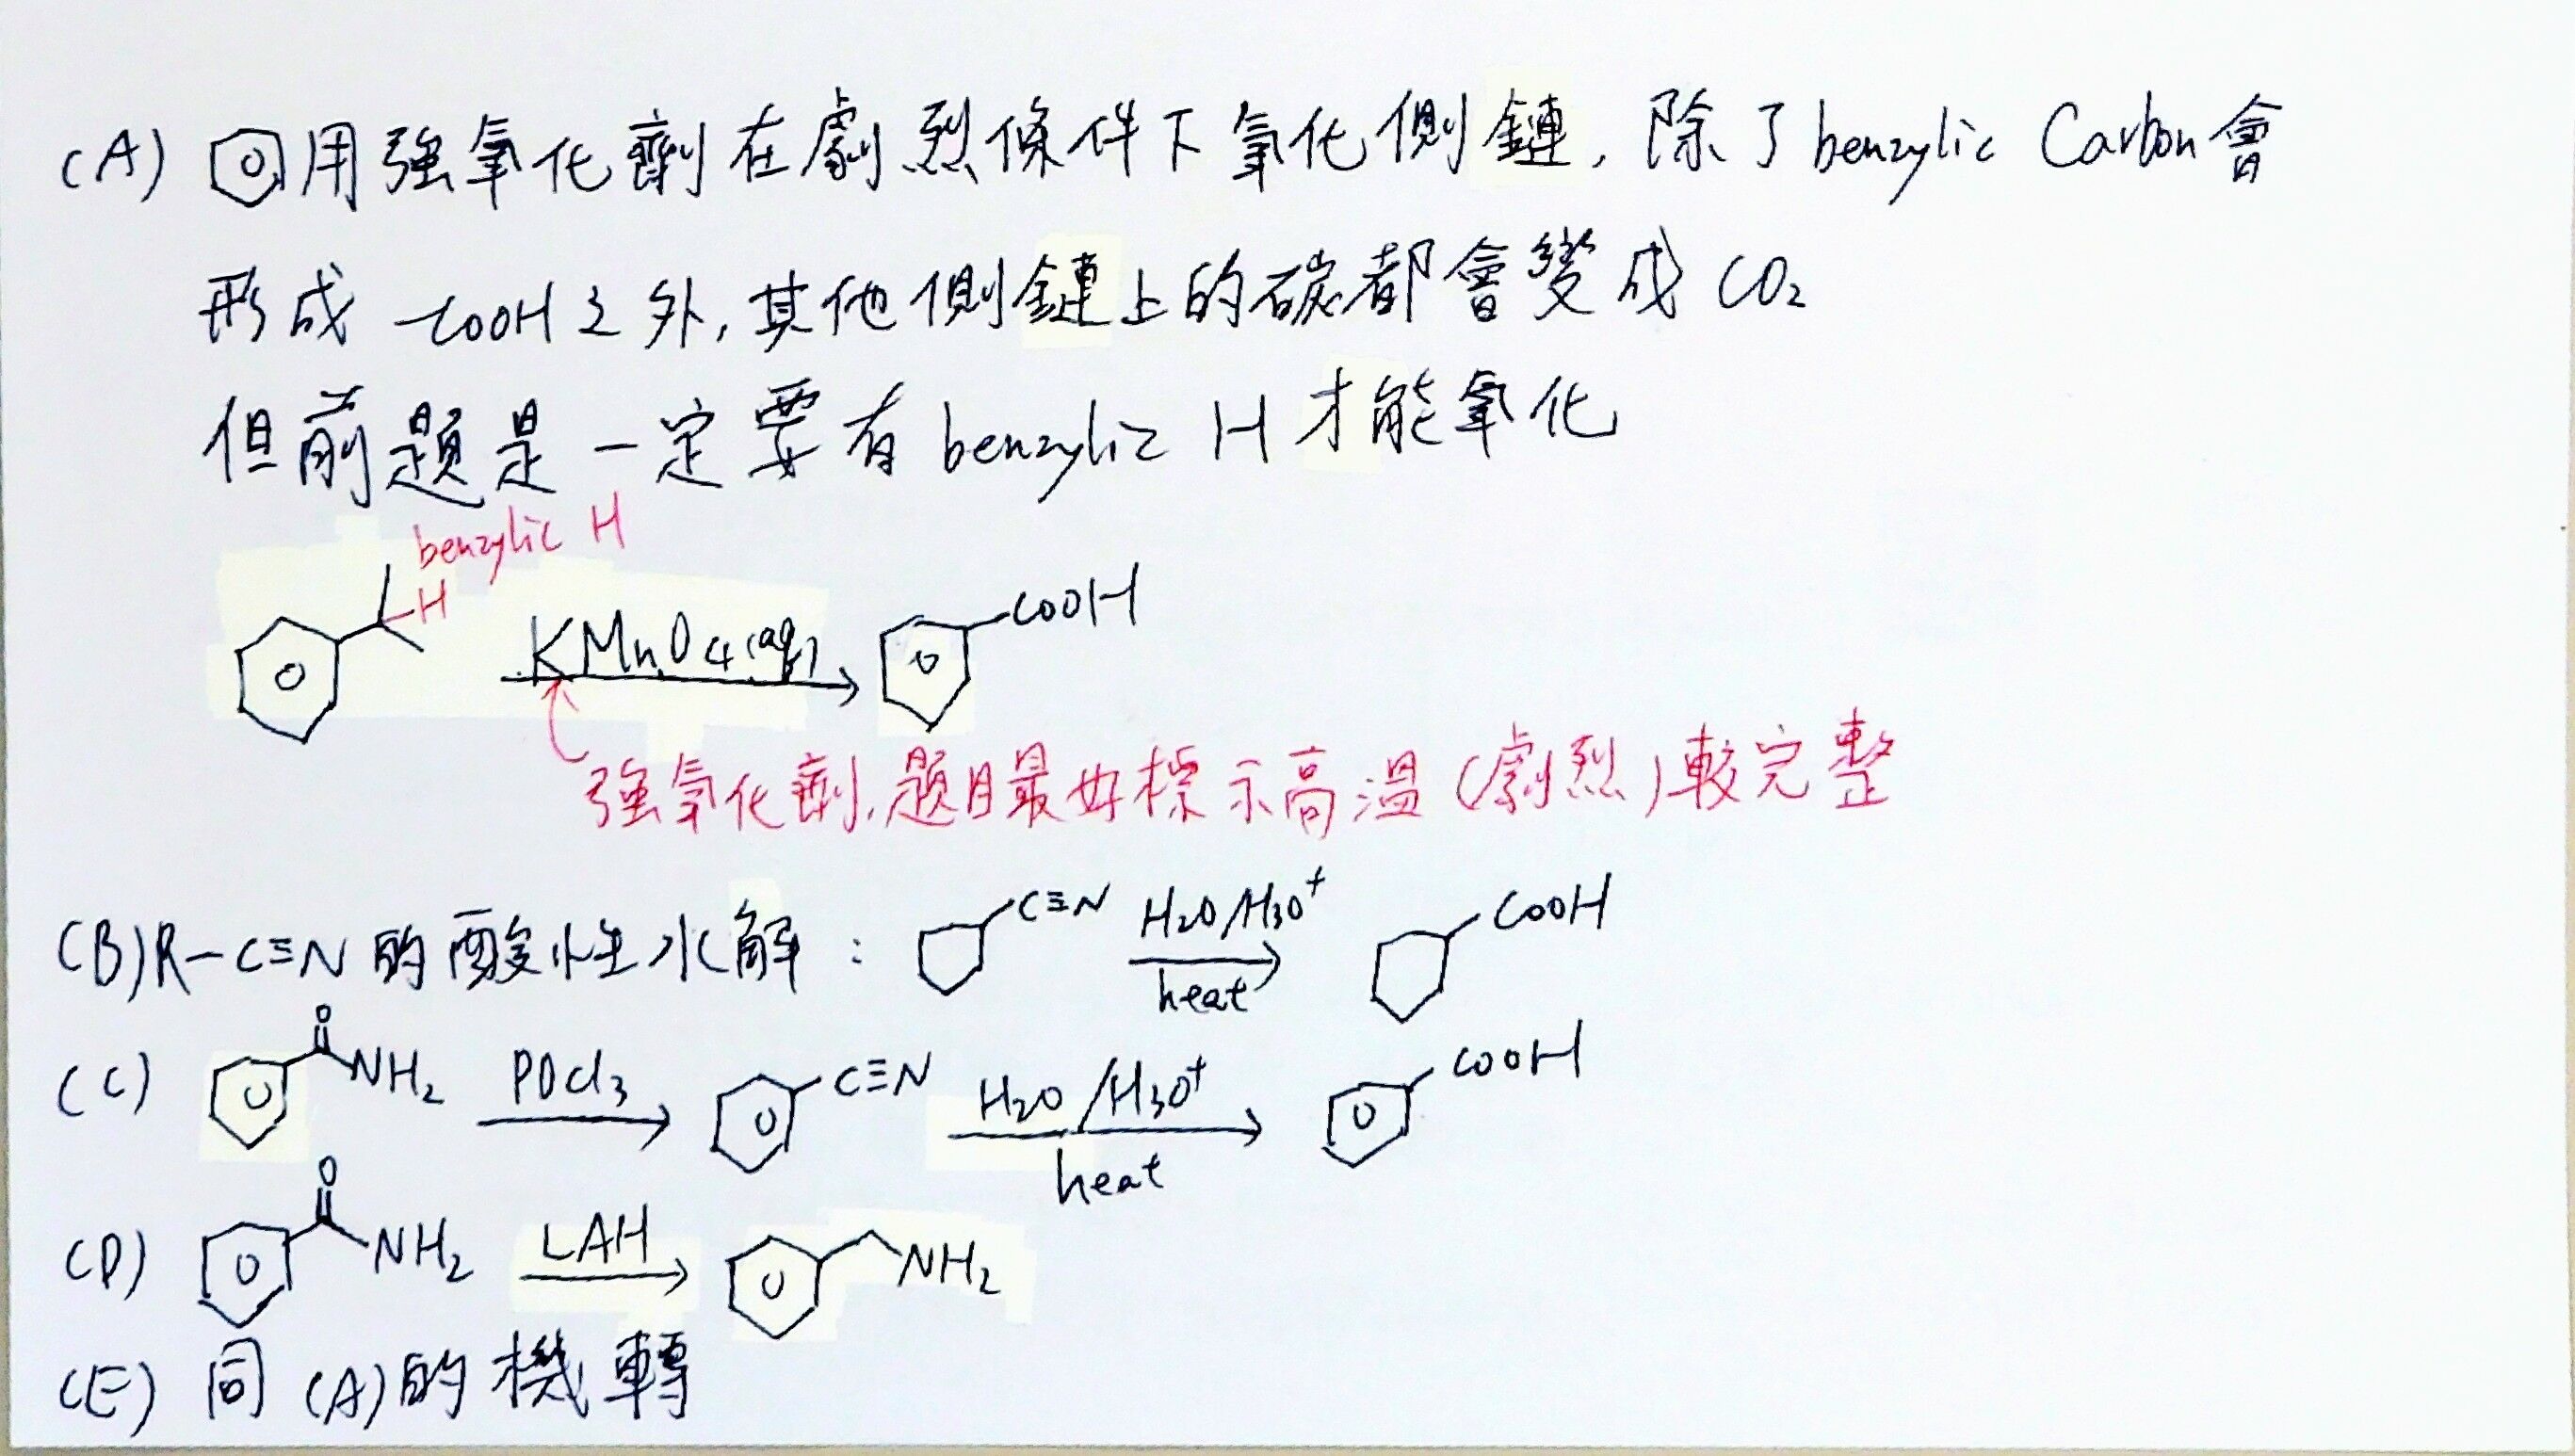 (A) 用強氧化劑在劇烈條件下氧化側鏈, 除了 benzylic Carbon 會
形成 -COOH 之外, 其他側鏈上的碳都會變成 CO₂
但前題是一定要有 benzylic H 才能氧化
benzylic H
H
KMnO₄(aq)
COOH
強氧化劑, 題目最好標示高溫(劇烈)較完整
(B) R-C≡N 的酸性水解: C≡N H₂O/H₃O⁺ heat COOH
(C) O NH₂ POCl₃ C≡N H₂O/H₃O⁺ heat COOH
(D) O NH₂ LAH NH₂
(E) 同 (A) 的機轉